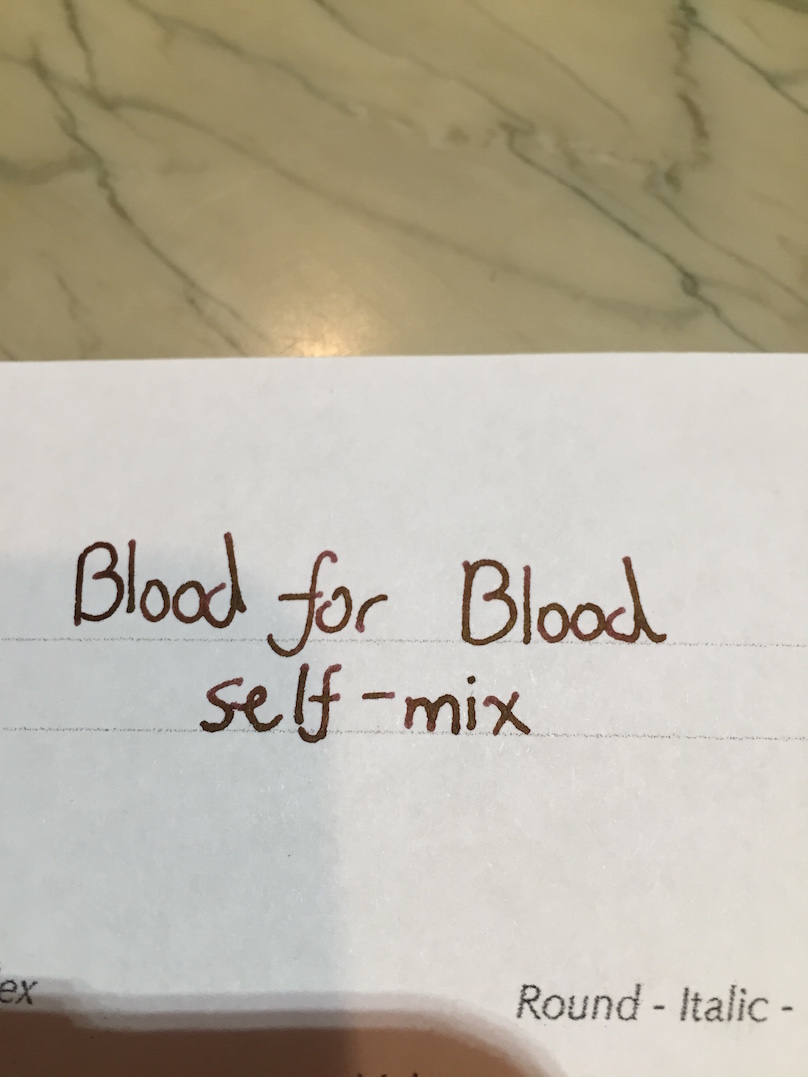 Blood for Blood
self-mix
ex
Round - Italic -